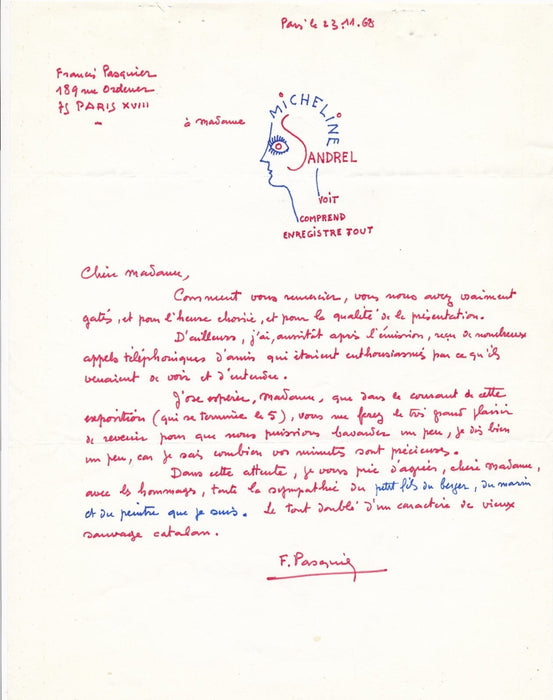 Paris le 23.11.68
Francis Pasquier
189 rue Ordener
75 PARIS XVIII
à madame
MICHELINE
SANDREL
VOIT
COMPREND
ENREGISTRE TOUT
Chère Madame,
Comment vous remercier, vous nous avez vraiment
gatés, et pour l'heure choisie, et pour la qualité de la présentation.
D'ailleurs, j'ai, aussitôt après l'émission, reçu de nombreux
appels téléphoniques d'amis qui étaient enthousiasmés par ce qu'ils
venaient de voir et d'entendre.
J'ose espérer, Madame, que dans le courant de cette
exposition (qui se termine le 5), vous me ferez le très grand plaisir
de revenir pour que nous puissions bavarder un peu, je dis bien
un peu, car je sais combien vos minutes sont précieuses.
Dans cette attente, je vous prie d'agréer, chère Madame,
avec les hommages, toute la sympathie du petit fils du berger, du marin
et du peintre que je suis. Le tout doublé d'un caractère de vieux
sauvage catalan.
F. Pasquier